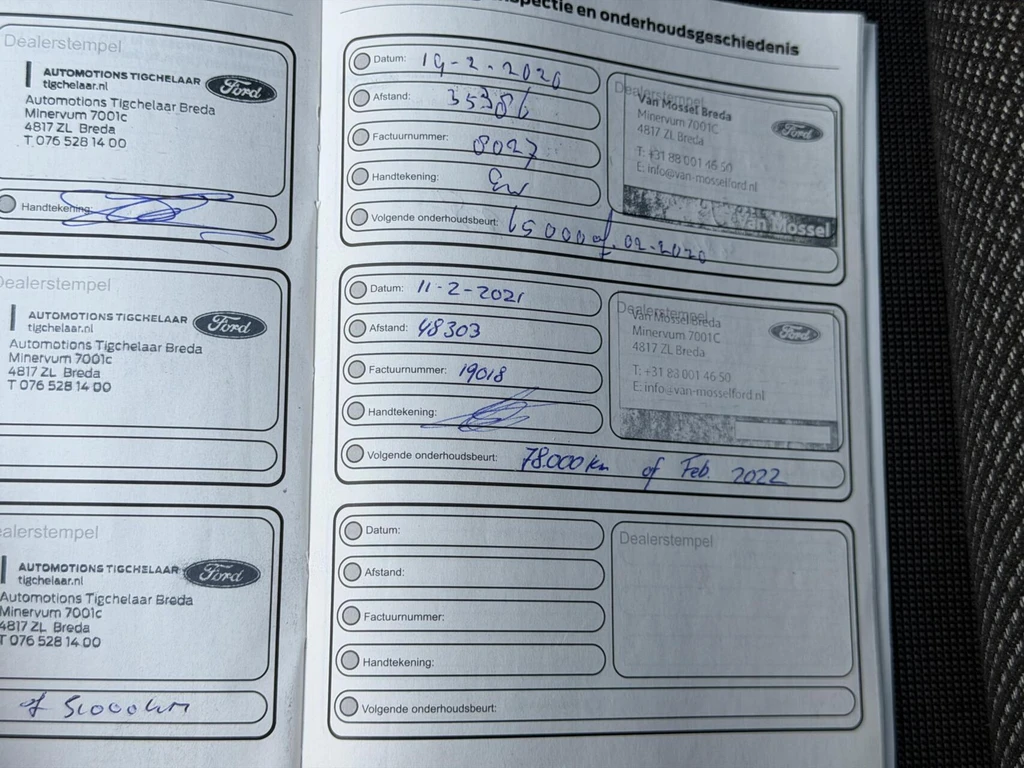 Dealerstempel
AUTOMOTIONS TIGCHELAAR
tigchelaar.nl
Ford
Automotions Tigchelaar Breda
Minervum 7001c
4817 ZL Breda
T 076 528 14 00
Handtekening:
Dealerstempel
AUTOMOTIONS TIGCHELAAR
tigchelaar.nl
Ford
Automotions Tigchelaar Breda
Minervum 7001c
4817 ZL Breda
T 076 528 14 00
ealerstempel
AUTOMOTIONS TIGCHELAAR
tigchelaar.nl
Ford
Automotions Tigchelaar Breda
Minervum 7001c
4817 ZL Breda
T 076 528 14 00
of 51000km
spectie en onderhoudsgeschiedenis
Datum: 19-2-2020
Afstand: 35386
Factuurnummer: 8027
Handtekening:
Volgende onderhoudsbeurt: 65000 of. 02-2020
Dealerstempel
Van Mossel Breda
Minervum 7001C
4817 ZL Breda
Ford
T: +31 88 001 46 50
E: info@van-mosselford.nl
Van Mossel
Datum: 11-2-2021
Afstand: 48303
Factuurnummer: 19018
Handtekening:
Volgende onderhoudsbeurt: 78.000 km of Feb. 2022
Dealerstempel
Van Mossel Breda
Minervum 7001C
4817 ZL Breda
Ford
T: +31 88 001 46 50
E: info@van-mosselford.nl
Datum:
Afstand:
Factuurnummer:
Handtekening:
Volgende onderhoudsbeurt:
Dealerstempel